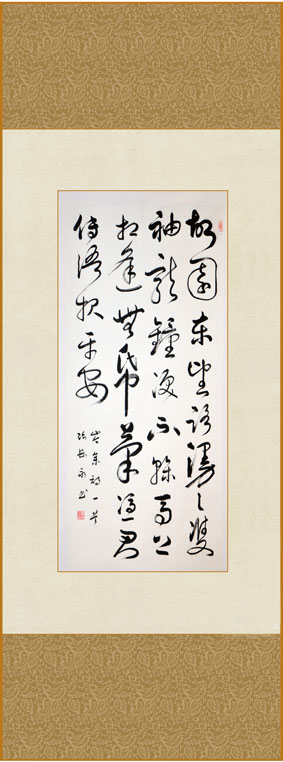 故園東望路漫々雙
袖龍鐘淚不乾馬上
相逢無帋筆憑君
傳語報平安
岑參詩一首